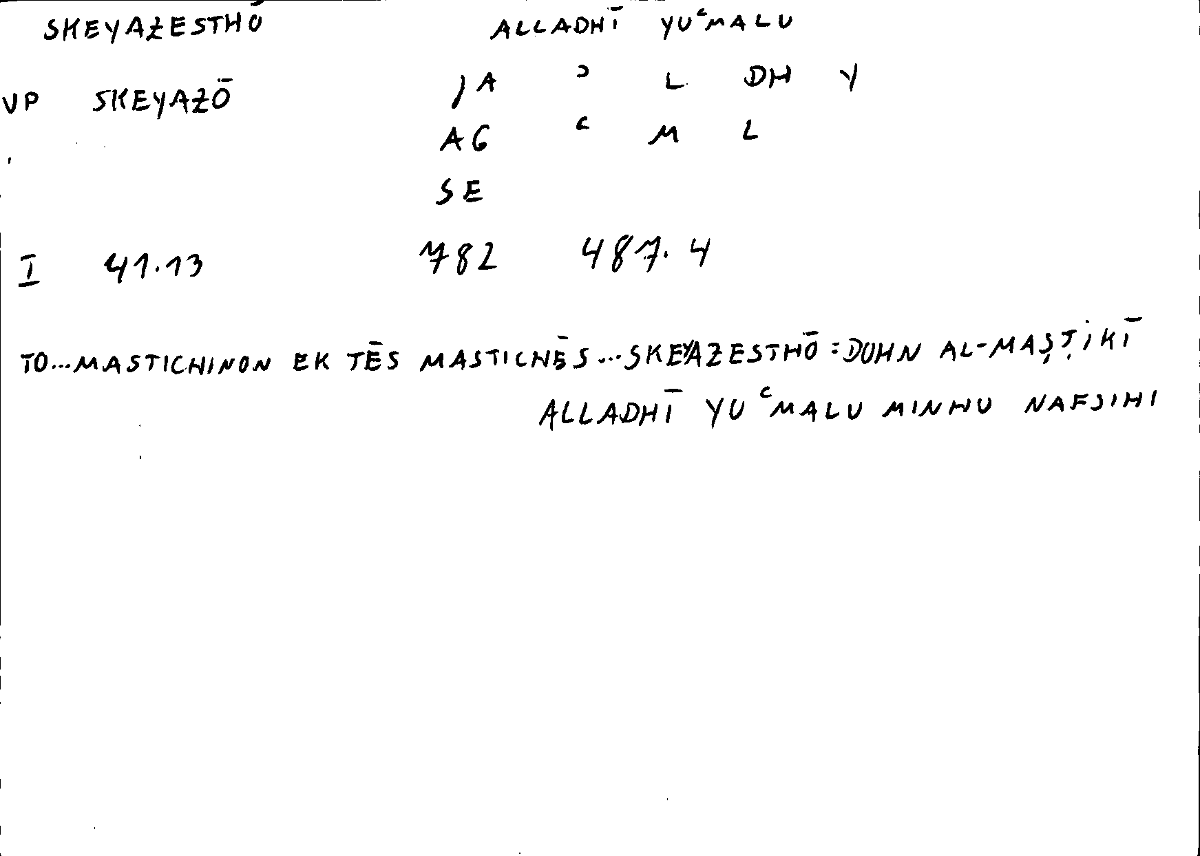 SKEYAŻESTHŌ ALLADHĪ YUʿMALU
VP SKEYAŻŌ JA ʾ L DH Y
AG ʿ M L
SE
I 41.13 782 487.4
TO...MASTICHINON EK TĒS MASTICHĒS...SKEYAŻESTHŌ = DUHN AL-MAṢṬIKĪ
ALLADHĪ YUʿMALU MINHU NAFSIHI